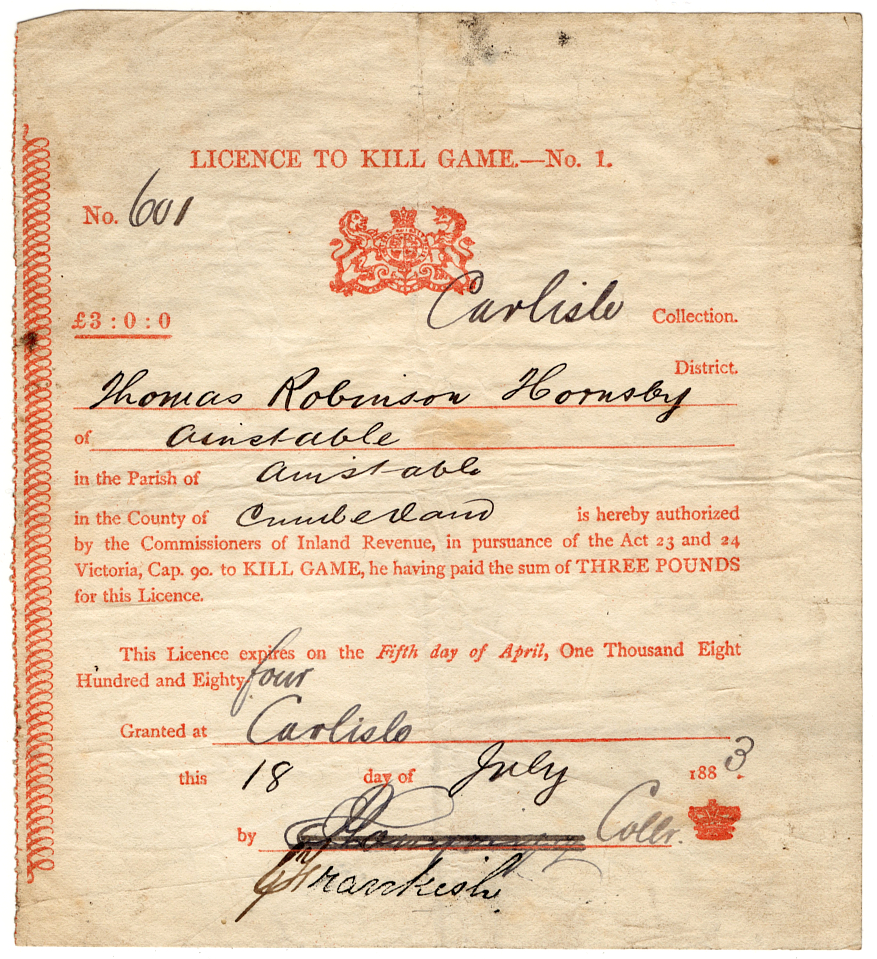 LICENCE TO KILL GAME.—No. 1.
No. 601
Carlisle Collection.
£3 : 0 : 0
District.
Thomas Robinson Hornsby
of Ainstable
in the Parish of Ainstable
in the County of Cumberland is hereby authorized
by the Commissioners of Inland Revenue, in pursuance of the Act 23 and 24
Victoria, Cap. 90. to KILL GAME, he having paid the sum of THREE POUNDS
for this Licence.
This Licence expires on the Fifth day of April, One Thousand Eight
Hundred and Eighty four
Granted at Carlisle
this 18 day of July 1883.
by Collr.
Frankish